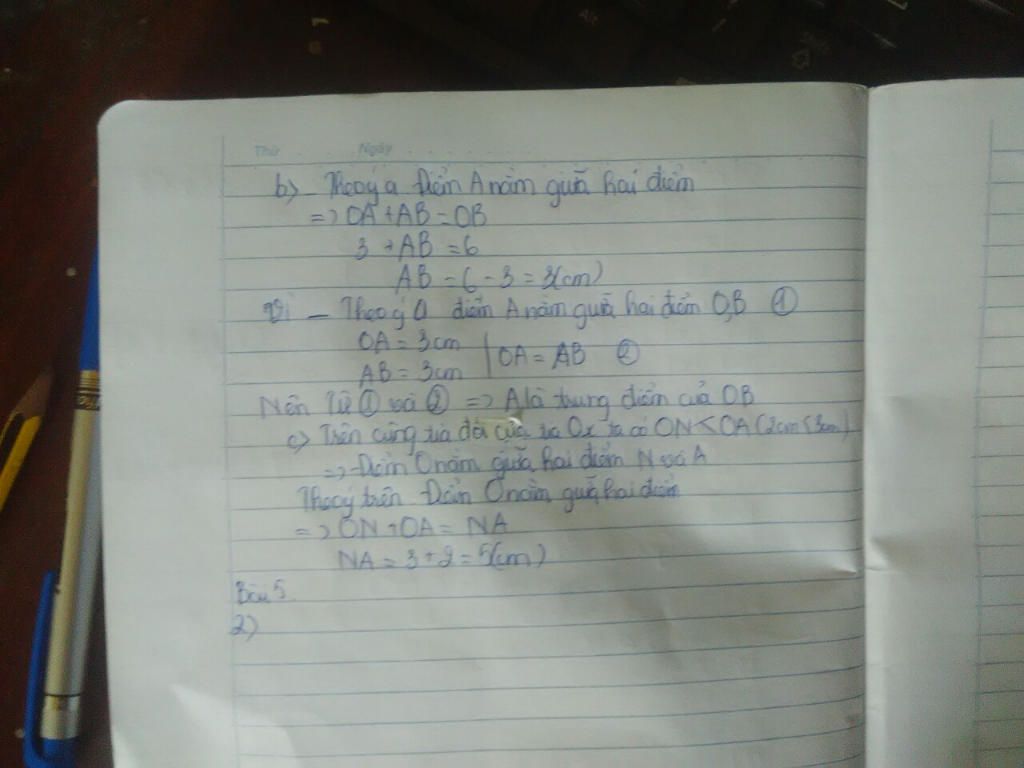 Thứ Ngày
b) - Theo ý a Điểm A nằm giữa hai điểm
=> OA + AB = OB
3 + AB = 6
AB = 6 - 3 = 3(cm)
Vì - Theo ý a điểm A nằm giữa hai điểm O,B ①
OA = 3cm
AB = 3cm | OA = AB ②
Nên Từ ① và ② => A là trung điểm của OB
c) Trên cùng tia đối của tia Ox ta có ON < OA (2cm < 3cm)
=> Điểm O nằm giữa hai điểm N và A
Theo ý trên Điểm O nằm giữa hai điểm
=> ON + OA = NA
NA = 3 + 2 = 5(cm)
Bài 5
2)